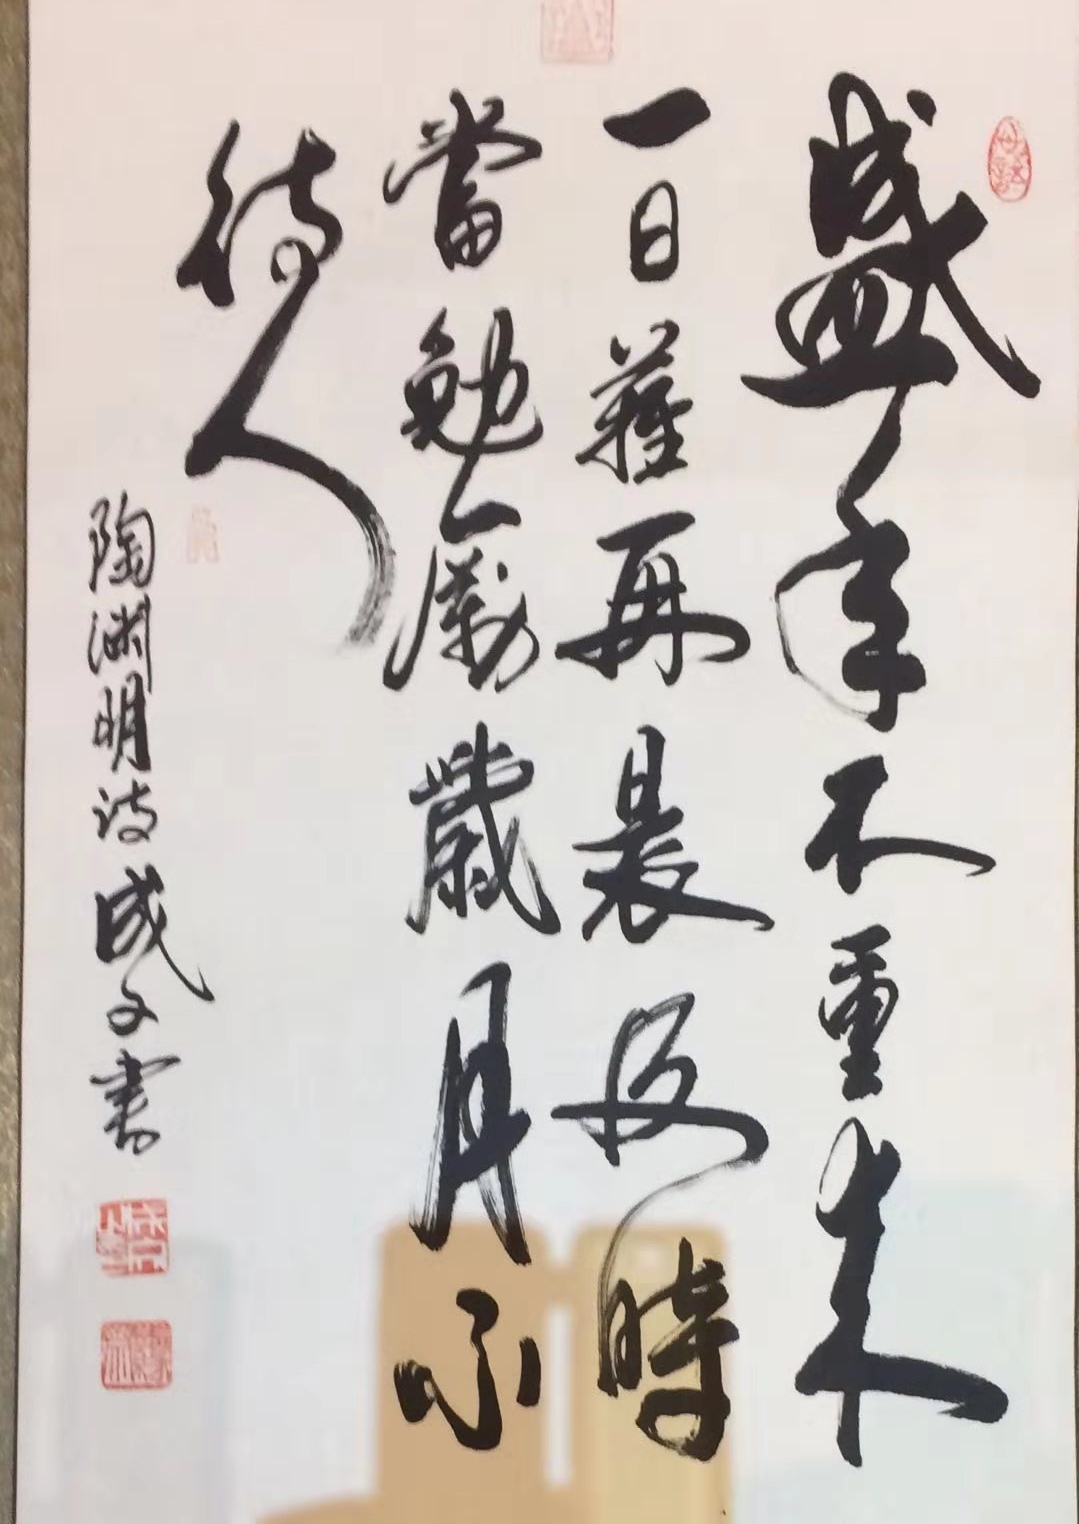 盛年不重来
一日難再晨及時
當勉勵歲月不
待人
陶渊明诗成文書